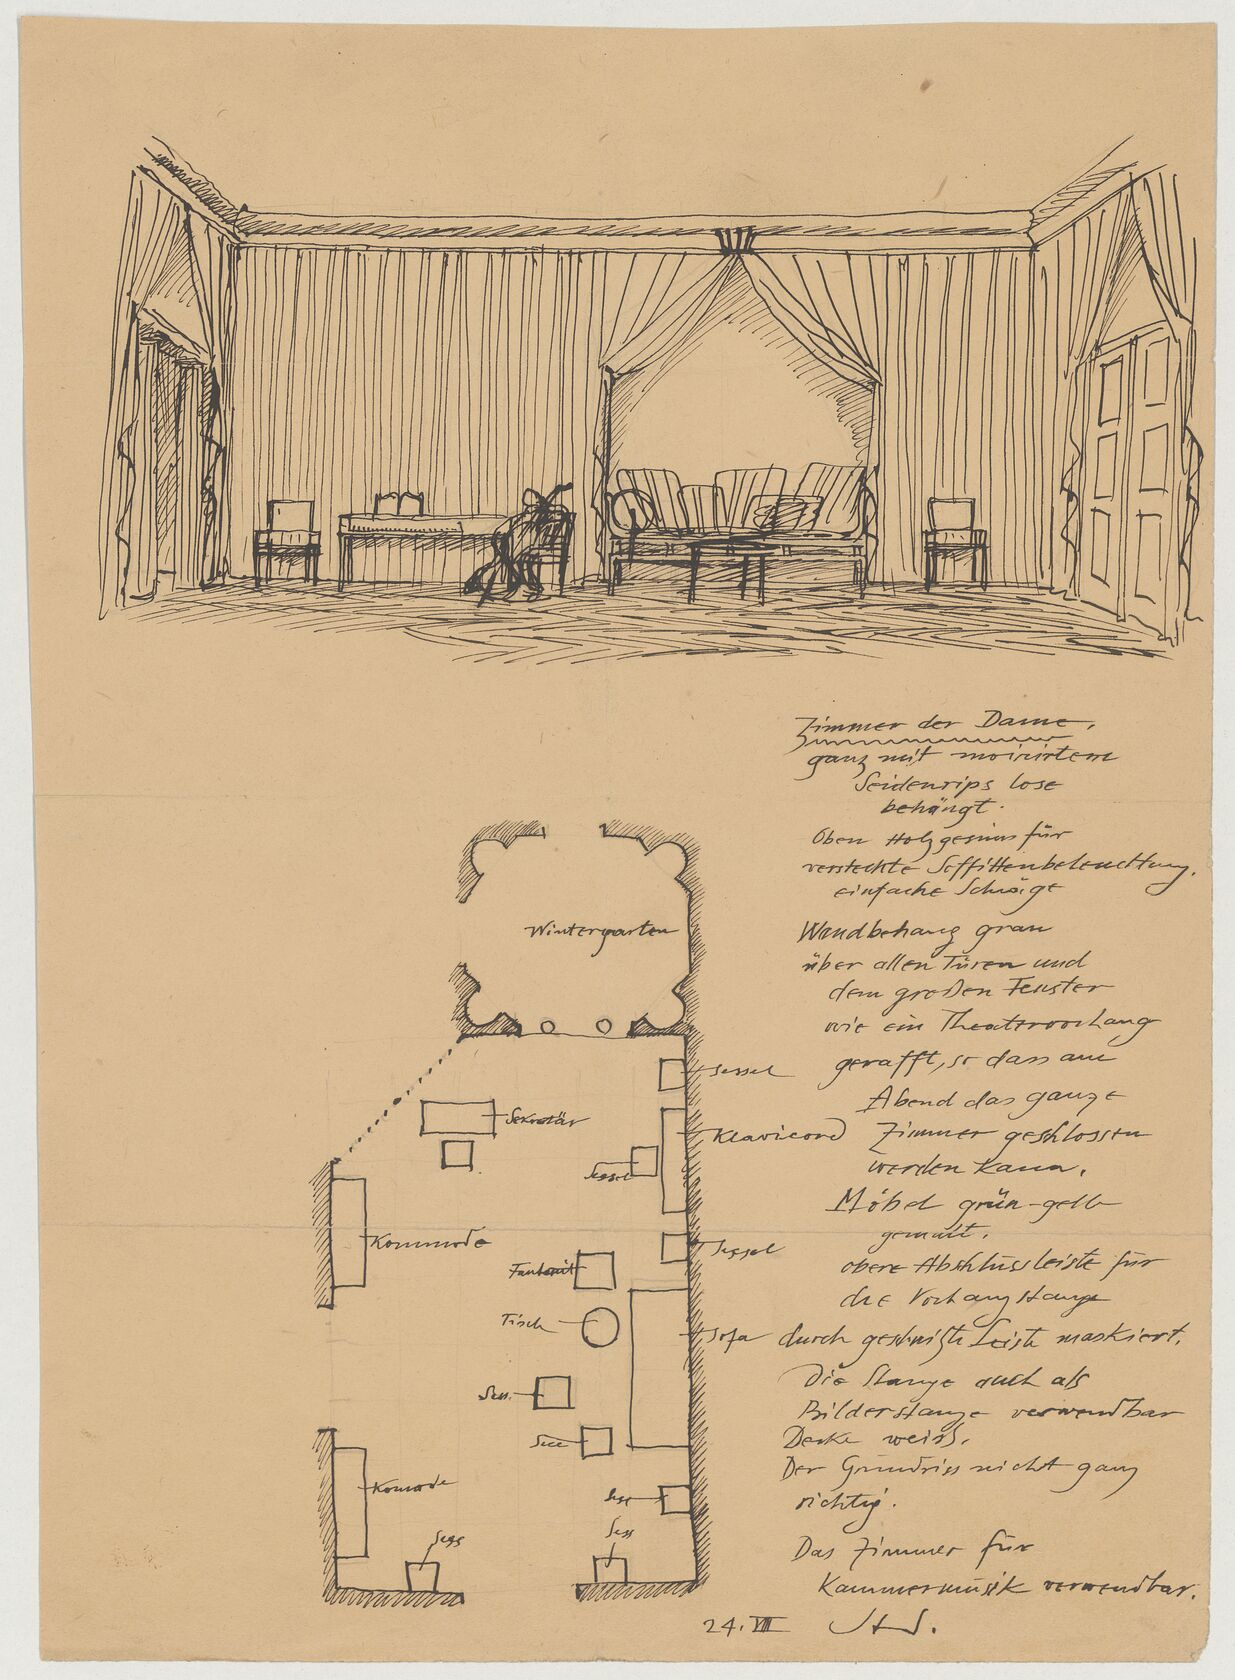 Zimmer der Dame,
ganz mit moirirtem
Seidenrips lose
behängt.
Oben Holzgesims für
versteckte Soffittenbeleuchtung.
einfache Schräge
Wandbehang grau
über allen Türen und
dem großen Fenster
wie ein Theatervorhang
gerafft, so dass am
Abend das ganze
Zimmer geschlossen
werden kann.
Möbel grün-gelb
gemalt.
obere Abschlussleiste für
die Vorhangstange
durch geschnitzte Leiste maskiert.
Die Stange auch als
Bilderstange verwendbar
Decke weiss.
Der Grundriss nicht ganz
richtig.
Das Zimmer für
Kammermusik verwendbar.
24. VIII
Wintergarten
Sessel
Sekretär
Klavicord
Sessel
Kommode
Sessel
Fauteuil
Tisch
Sofa
Sess.
Komode
Sess
Sess